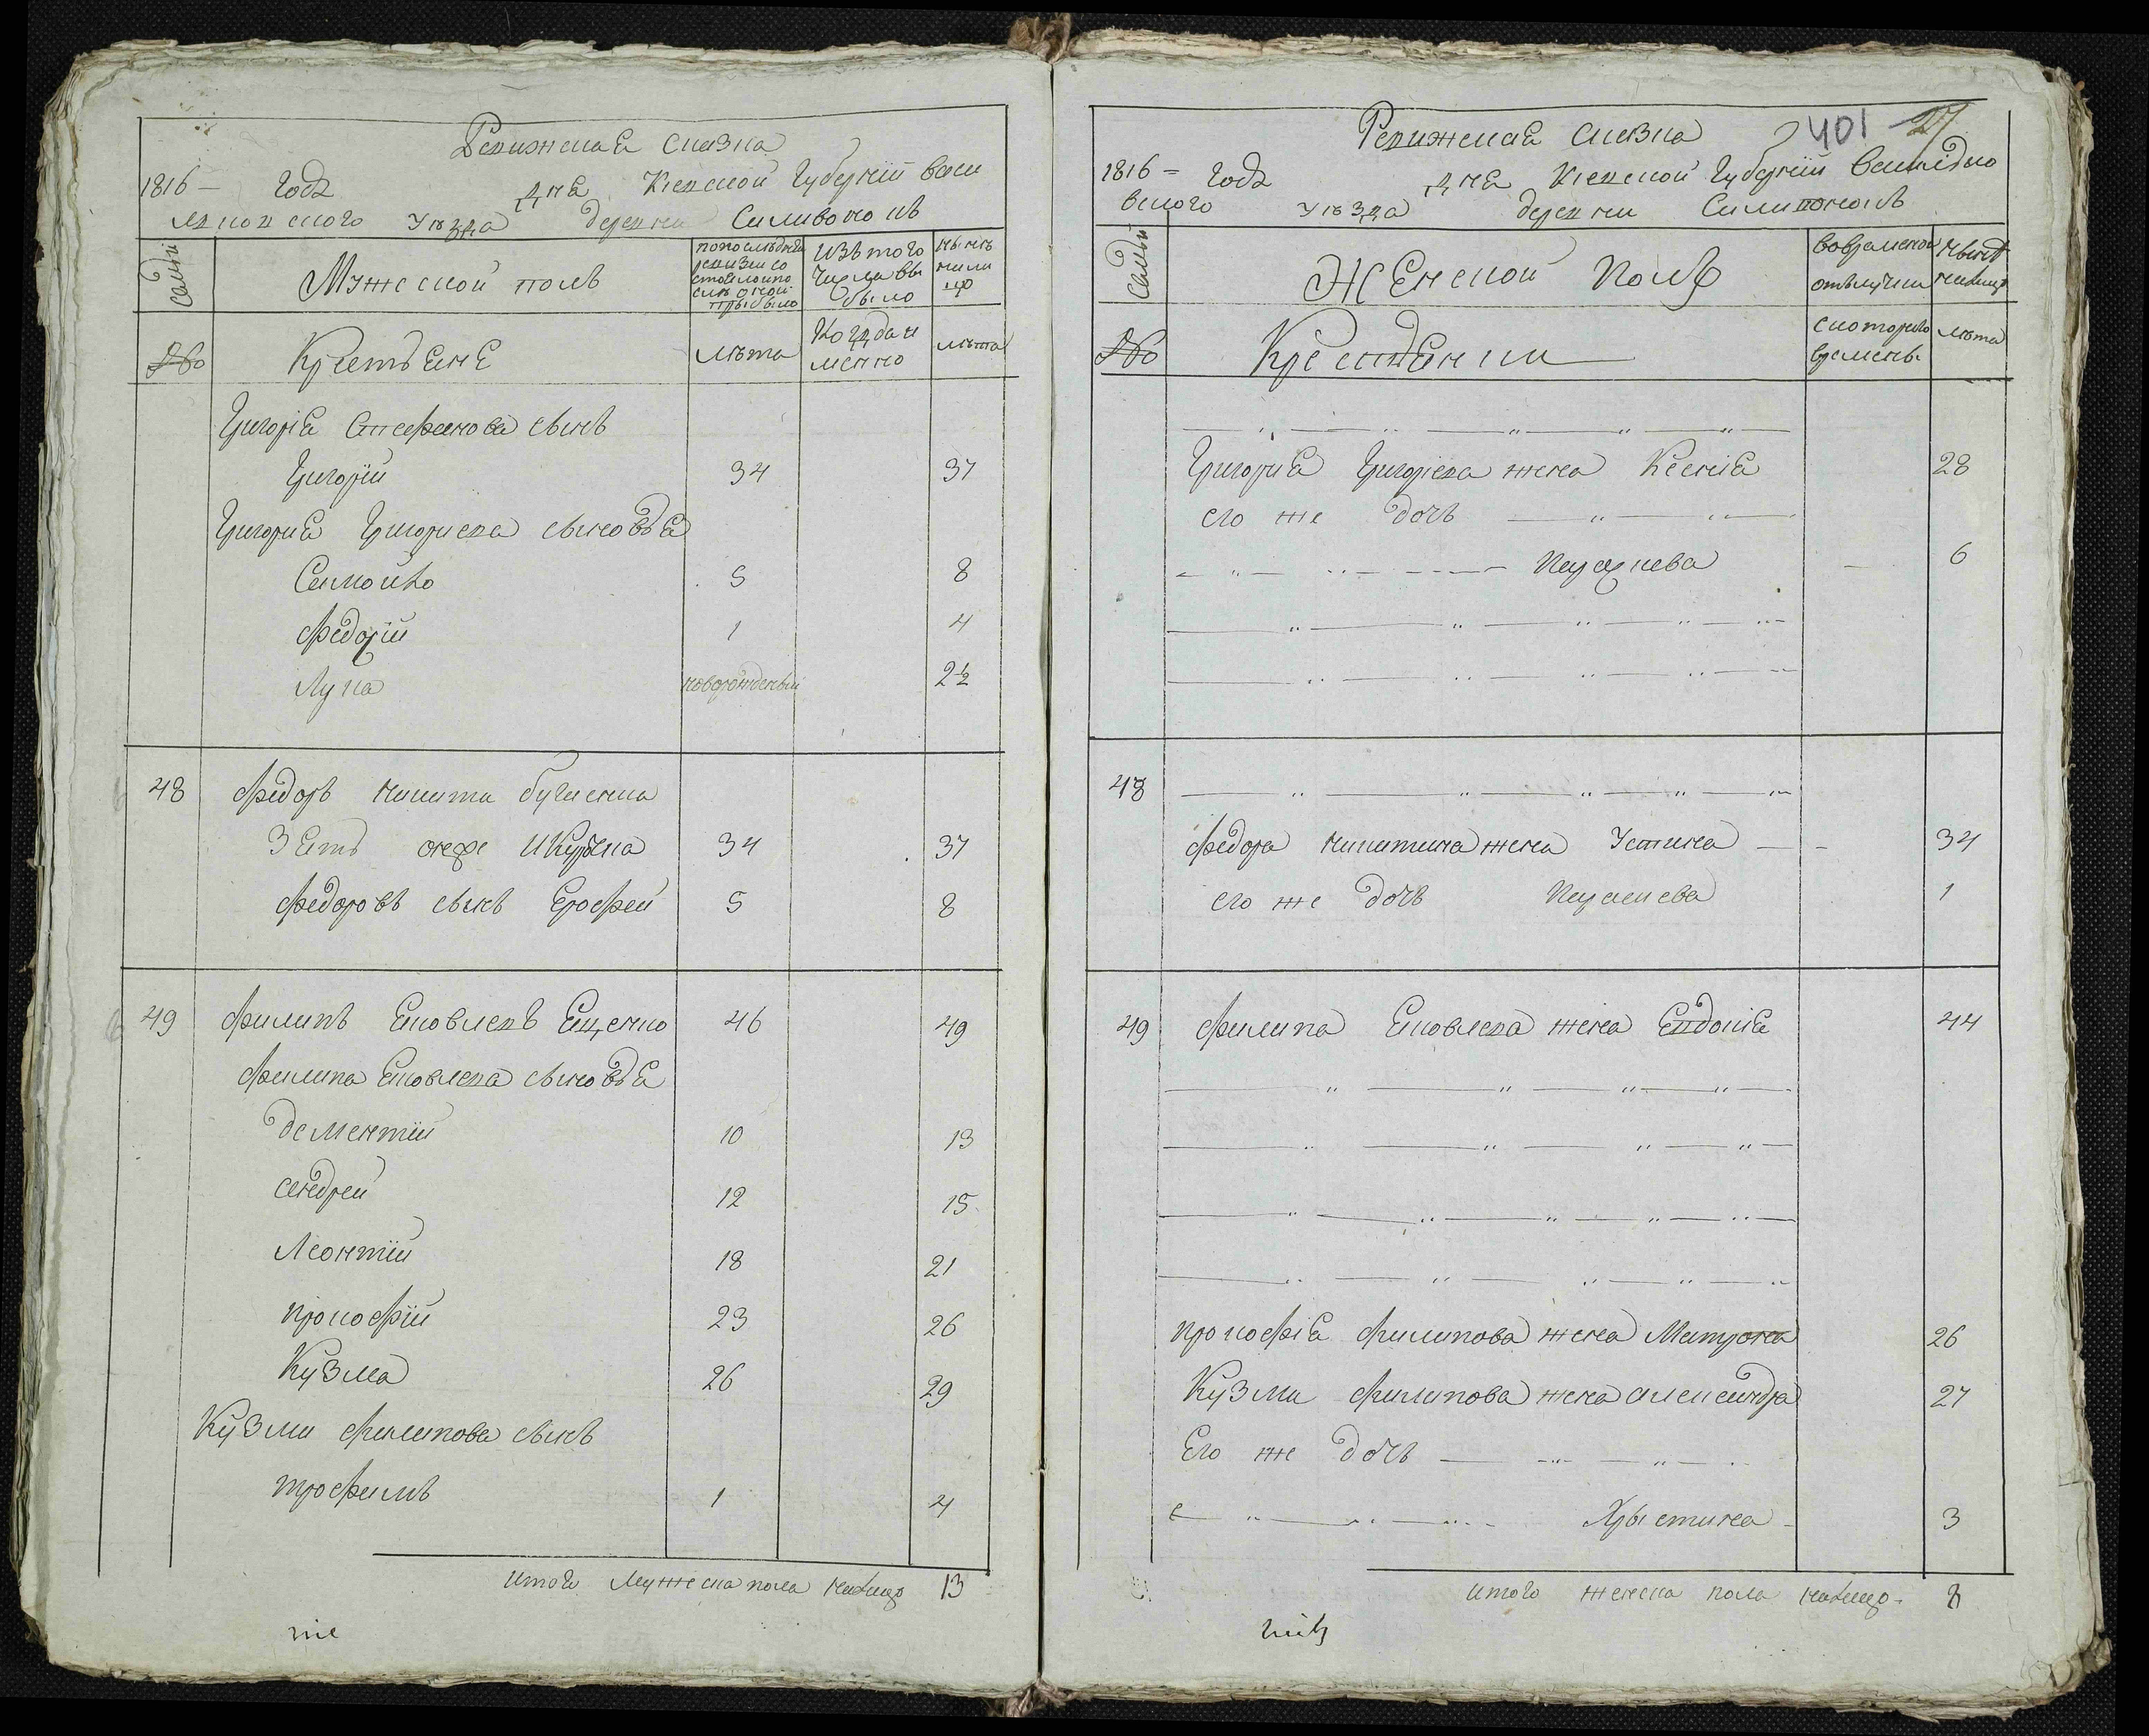 Ревижская сказка
1816 – года дня Киевской Губернiи Васи
лковского уезда деревни Саливонокъ
семьи
Мужеской полъ
по последней
ревизiи со
стояло и по
сле оной
прибыло
Изъ того
числа вы
было
ныне
нали
цо
№
Крестьяне
лета
Когда и
менно
лета
Григорiя Стефанова сынъ
Григорiй 34 37
Григория Григориева сыновья
Самойло 5 8
Федорiй 1 4
Лука новорожденый 2½
48 Федоръ никити
зять 34 37
Федоровъ сынъ Ерофей 5 8
49 Филипъ Яковлевъ Ященко 46 49
Филипа Яковлева сыновья
Дементiй 10 13
андрей 12 15
Леонтiй 18 21
прокофiй 23 26
Кузма 26 29
Кузми филипова сынъ
трофимъ 1 4
итого мужеска пола налицо 13
Ревижская сказка
401 27
1816 – года дня Киевской Губернiи Василько
вского уезда деревни Саливонокъ
семьи
Женской полъ
во временой
отлучки
ныне
налицо
№
Крестьянки
с которого
времены
лета
Григория Григорiева жена Ксенiя 28
его же дочь
Параскева 6
48
Федора никитина жена Устина 34
его же дочь Параскева 1
49 филипа Яковлева жена Евдокiя 44
прокофiя филипова жена Матрона 26
Кузми филипова жена александра 27
Его же дочь
Христина 3
итого женска пола налицо 8